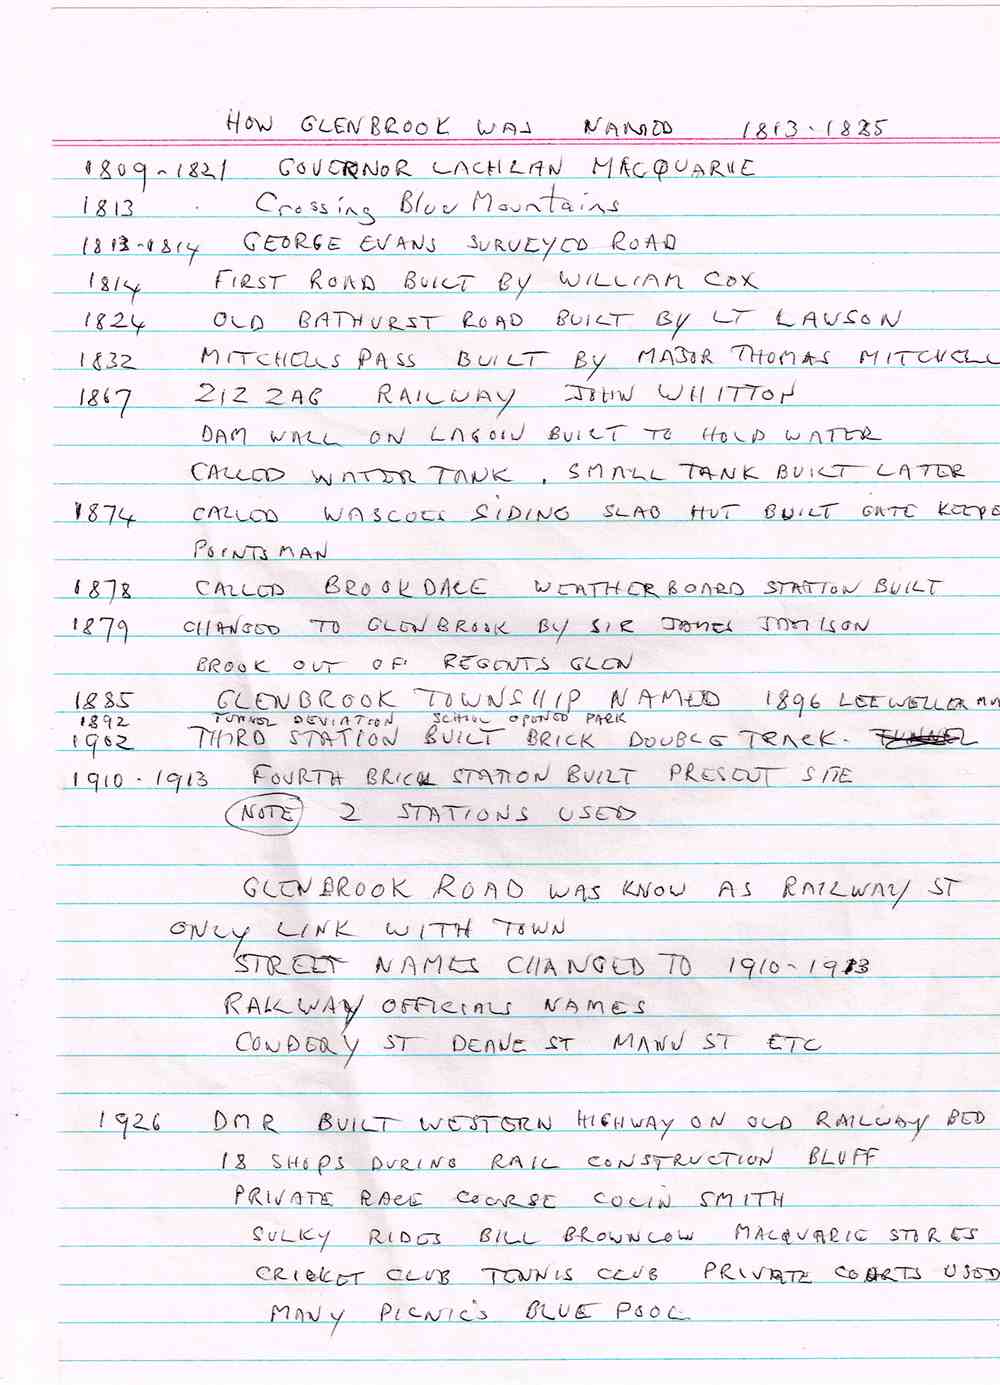 HOW GLENBROOK WAS NAMED 1813-1885
1809-1821 GOVERNOR LACHLAN MACQUARIE
1813 Crossing Blue Mountains
1813-1814 GEORGE EVANS SURVEYED ROAD
1814 FIRST ROAD BUILT BY WILLIAM COX
1824 OLD BATHURST ROAD BUILT BY LT LAWSON
1832 MITCHELLS PASS BUILT BY MAJOR THOMAS MITCHELL
1867 ZIZ ZAG RAILWAY JOHN WHITTON
DAM WALL ON LAGOIN BUILT TO HOLD WATER
CALLED WATER TANK, SMALL TANK BUILT LATER
1874 CALLED WASCOES SIDING SLAB HUT BUILT GATE KEEPE
POINTSMAN
1878 CALLED BROOKDALE WEATHERBOARD STATION BUILT
1879 CHANGED TO GLENBROOK BY SIR JAMES JAMISON
BROOK OUT OF REGENTS GLEN
1885 GLENBROOK TOWNSHIP NAMED 1896 LEEWELLER
1892 TUNNEL DEVIATION SCHOOL OPENED PARK
1902 THIRD STATION BUILT BRICK DOUBLE TRACK.
1910-1913 FOURTH BRICK STATION BUILT PRESENT SITE
NOTE 2 STATIONS USED
GLENBROOK ROAD WAS KNOW AS RAILWAY ST
ONLY LINK WITH TOWN
STREET NAMES CHANGED TO 1910-1913
RAILWAY OFFICIALS NAMES
CONDERY ST DEANE ST MANN ST ETC
1926 DMR BUILT WESTERN HIGHWAY ON OLD RAILWAY BED
18 SHOPS DURING RAIL CONSTRUCTION BLUFF
PRIVATE RACE COURSE COLIN SMITH
SULKY RIDES BILL BROWNLOW MACQUARIE STORES
CRICKET CLUB TENNIS CLUB PRIVATE COURTS USED
MANY PICNIC'S BLUE POOL